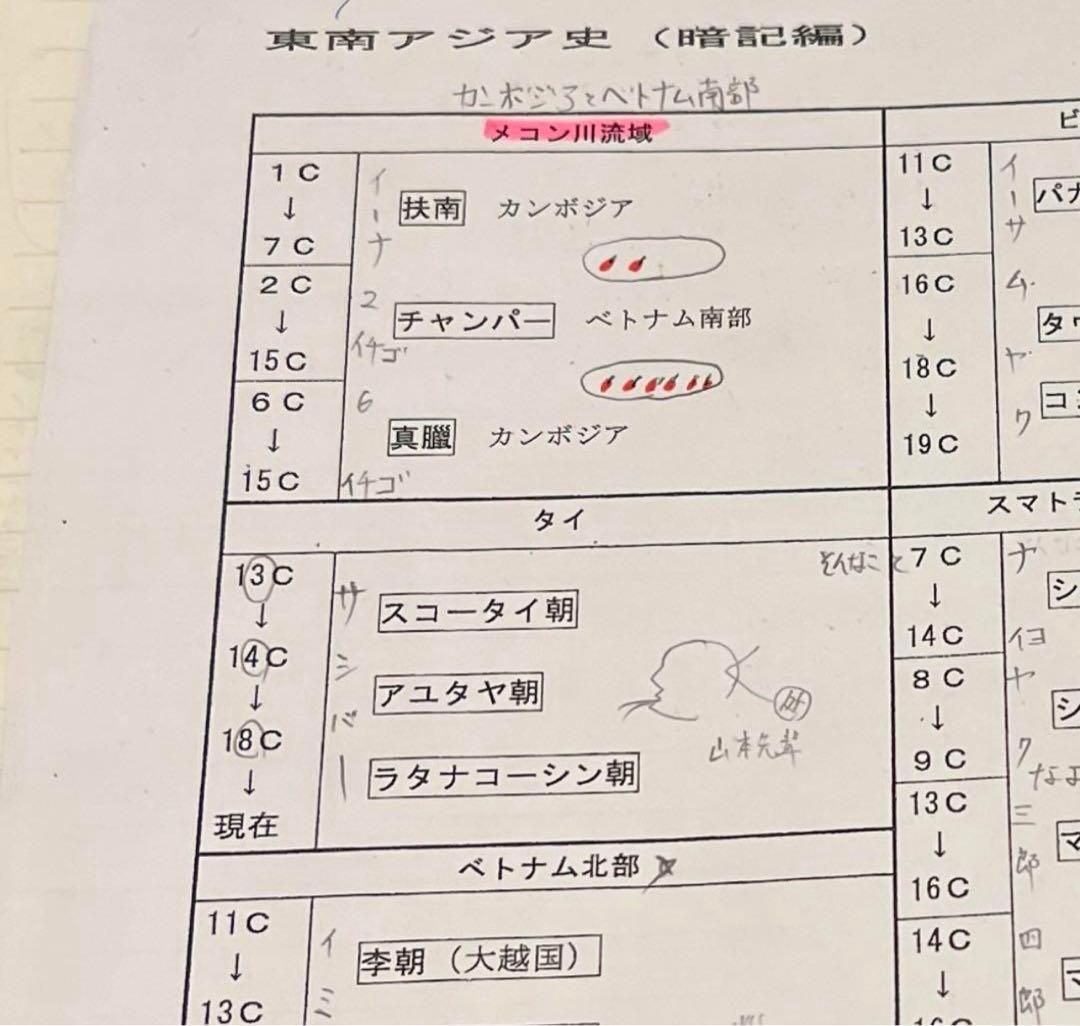 東南アジア史（暗記編）
カンボジアとベトナム南部
メコン川流域
1C
↓
7C
イーナ
扶南 カンボジア
2C
↓
15C
2
イチゴ
チャンパー ベトナム南部
6C
↓
15C
6
イチゴ
真臘 カンボジア
タイ
13C
↓
14C
↓
18C
↓
現在
サシバー
スコータイ朝
アユタヤ朝
ラタナコーシン朝
山本先輩
ベトナム北部
11C
↓
13C
イミ
李朝（大越国）
ビ
11C
↓
13C
イーサ
パガ
16C
↓
18C
↓
19C
ムヤク
タウ
コ
スマトラ
そんなこと
7C
↓
14C
ナイヨ
シ
8C
↓
9C
ヤク
シ
なよ
13C
↓
16C
三郎
マ
14C
↓
16C
四郎
マ